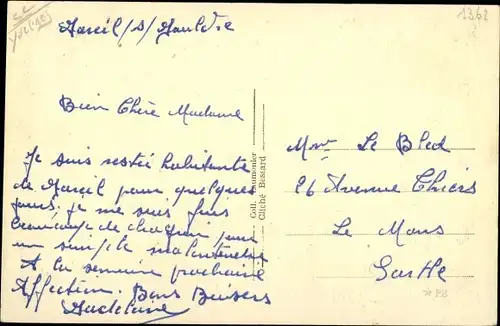 Mareil/s/Mauldre
1362
Bien Chère Madame
Je suis restée habitante
de Mareil pour quelques
jours, je me suis fais
beaucoup de chagrin pour
un simple malentendu
A la semaine prochaine
Affection. Bons Baisers
Madeleine
Coll.
Cliché Bussard
Mme Le Bled
26 Avenue Thiers
Le Mans
Sarthe